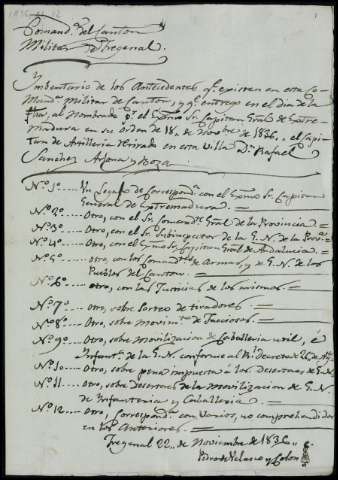 Comand.ª del Canton
Militar de Fregenal.
Ynbentario de los Antecedentes q.e existen en esta Co-
mand.ª militar de Canton, y q.e entrego en el dia de la
fha, al Nombrado p.r el Exmo Sr. Capitan Gral de Estre-
madura en su orden de 18,, de Novbre de 1836,, el Capi-
tan de Artilleria retirado en esta Villa D.n Rafael
Sanchez Arjona y Boza.
N.o 1.o Un Legajo de Correspond.ª con el Exmo Sr. Capitan
General de Extremadura.
N.o 2.o otro, con el Sr. Comand.te Gral de la Provincia.
N.o 3.o otro, con el Sr. Subinspector de la G.N. de la Prov.ª
N.o 4.o otro, con el Exmo Sr. Capitan Gral de Andalucia.
N.o 5.o otro, con los Comand.tes de Armas, y de G.N. de los
Pueblos del Canton.
N.o 6.o otro, con las Justicias de los mismos.
N.o 7.o otro, sobre Sorteo de tiradores.
N.o 8.o otro, sobre Movim.tos de Facciosos.
N.o 9.o otro, sobre Movilizacion de Caballeria util, é
Infant.ª de la G.N. conforme al Rl. Decreto de 26 de Ag.to
N.o 10 otro, sobre pena impuesta á los Desertores de G.N.
N.o 11 otro, sobre desertores de la Movilizacion de G.N.
de Infanteria y Caballeria.
N.o 12 otro, Correspond.ª con Varios, no comprehendidos
en los Anteriores.
Fregenal 22,, de Noviembre de 1836
Pedro de Velasco y Colon